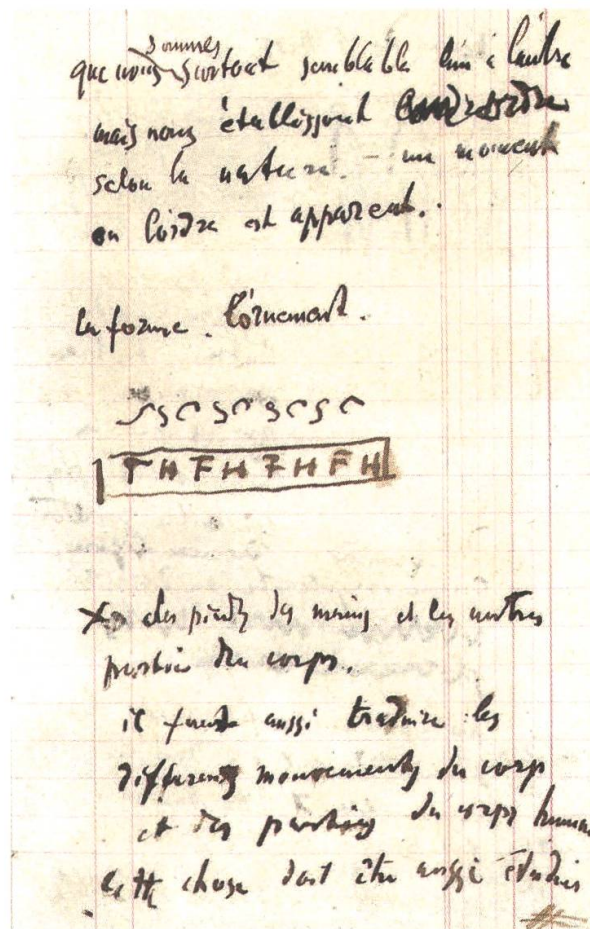 sommes
que nous surtout semblable l'un à l'autre
mais nous établissont
selon la nature. - un moment
ou l'ordre est apparent.
la forme. l'ornement.
T H F H F H F H
des pieds des mains et les autres
parties du corps.
il faut aussi traduire les
differents mouvements du corp
et des parties du corps humain
cette chose doit être aussi étudiée